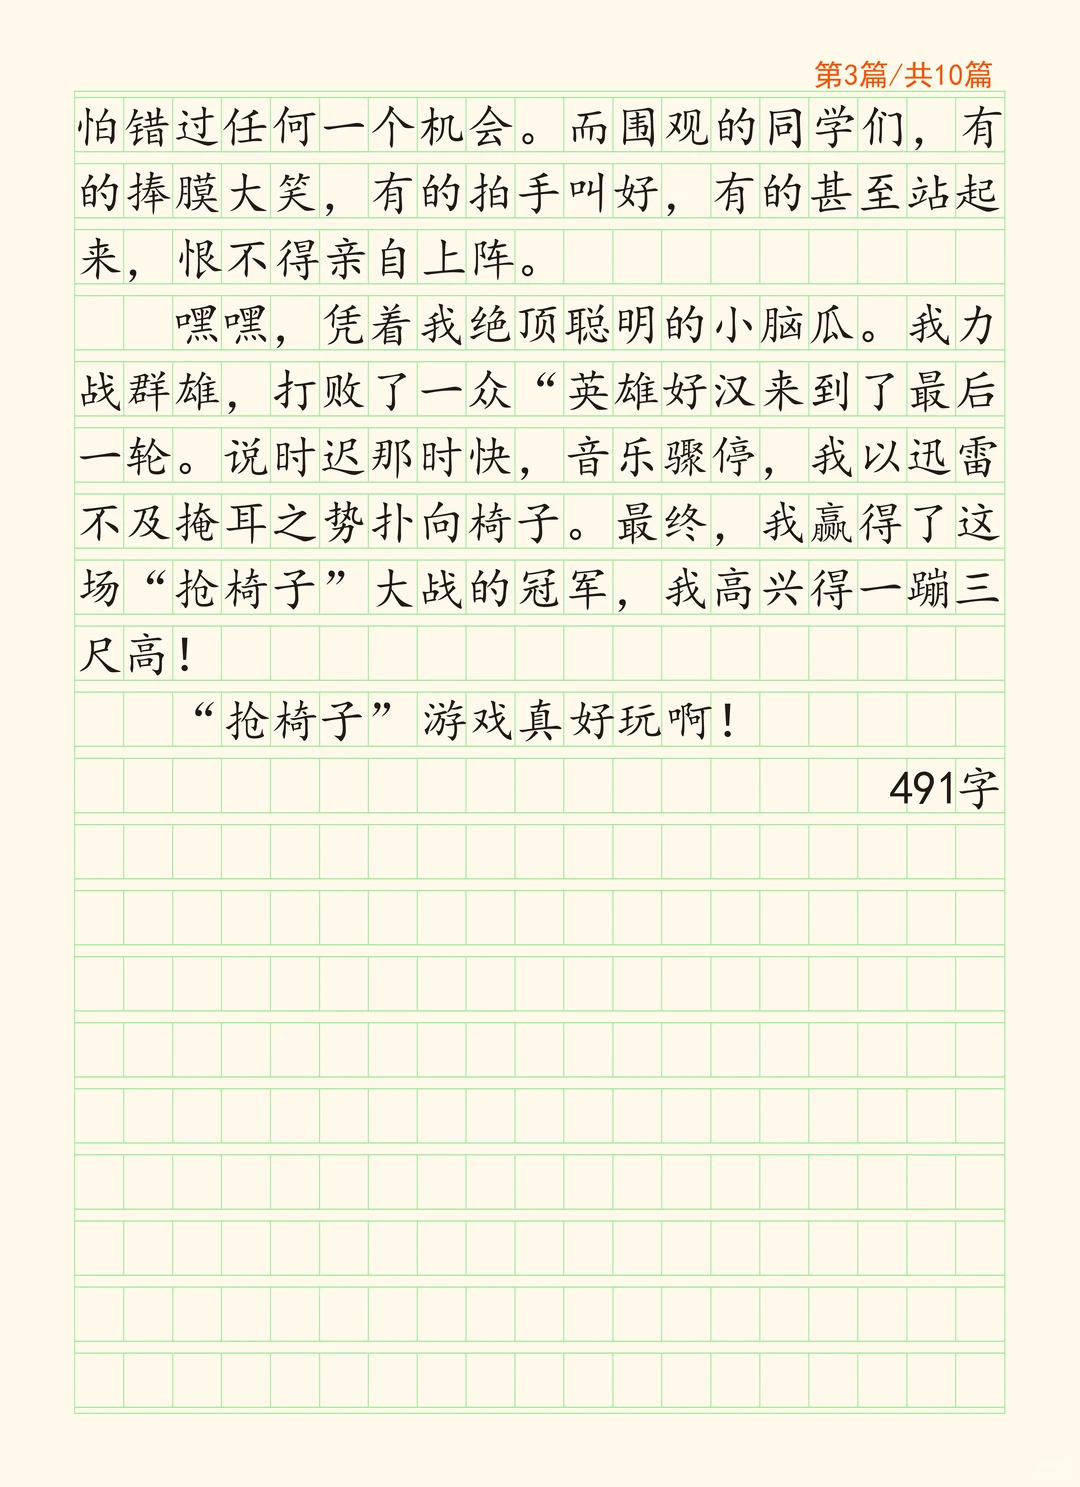 第3篇/共10篇
怕错过任何一个机会。而围观的同学们，有
的捧膜大笑，有的拍手叫好，有的甚至站起
来，恨不得亲自上阵。
嘿嘿，凭着我绝顶聪明的小脑瓜。我力
战群雄，打败了一众“英雄好汉来到了最后
一轮。说时迟那时快，音乐骤停，我以迅雷
不及掩耳之势扑向椅子。最终，我赢得了这
场“抢椅子”大战的冠军，我高兴得一蹦三
尺高！
“抢椅子”游戏真好玩啊！
491字